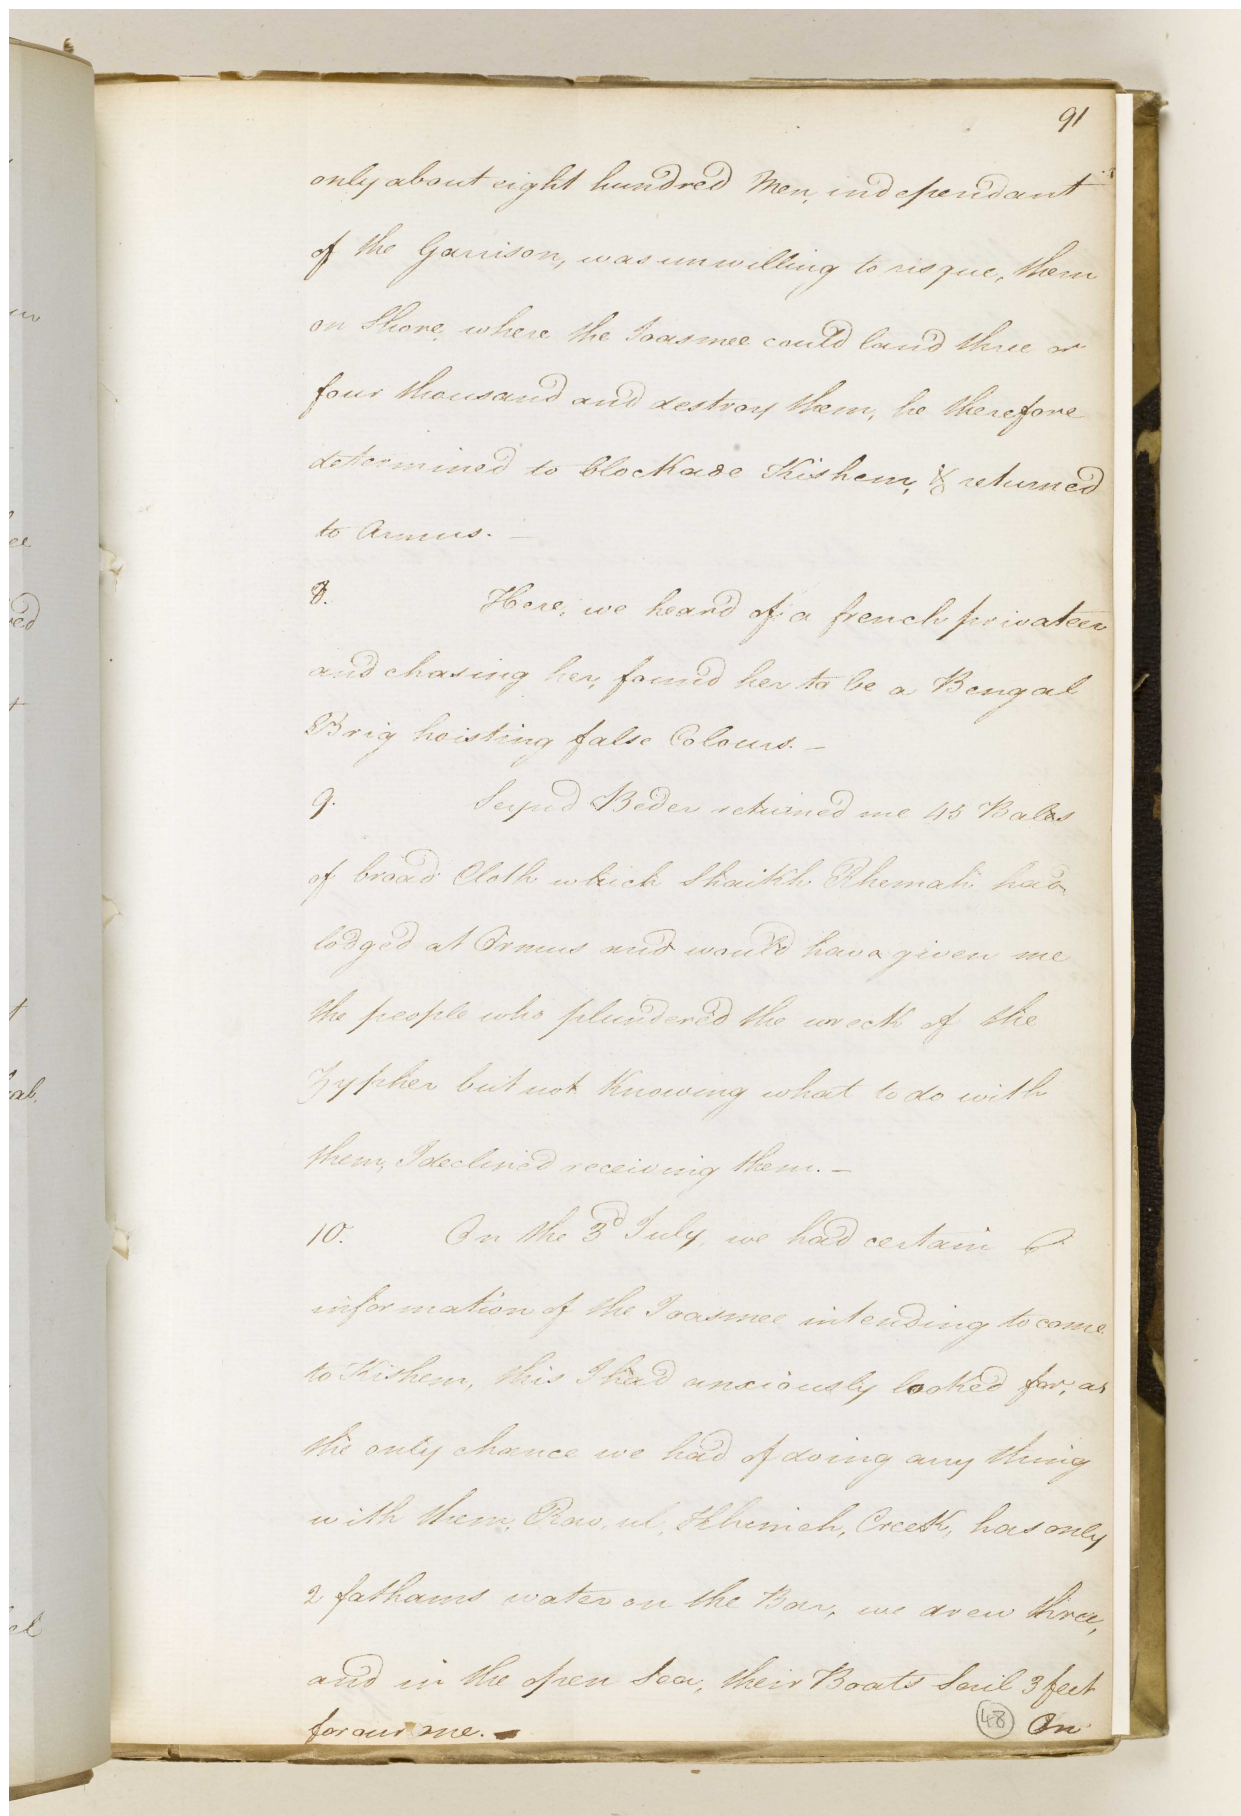 91
only about eight hundred Men, independant
of the Garrison, was unwilling to risque, them
on Shore, where the Joasmee could land three or
four thousand and destroy them, he therefore
determined to blockade Kishem, & returned
to Armus. —
8. Here, we heard of a french privateer
and chasing her, found her to be a Bengal
Brig hoisting false Colours. —
9. Seyud Beder returned me 45 Bales
of broad Cloth which Shaikh Rhemah had
lodged at Ormus and would have given me
the people who plundered the wreck of the
Zypher but not knowing what to do with
them, I declined receiving them. —
10. On the 3d July, we had certain
information of the Joasmee intending to come
to Kishem, this I had anxiously looked for, as
the only chance we had of doing any thing
with them, Ras, ul, Creek, has only
2 fathams water on the Bar, we drew three,
and in the open Sea, their Boats Sail 3 feet
for our one. —
48 On